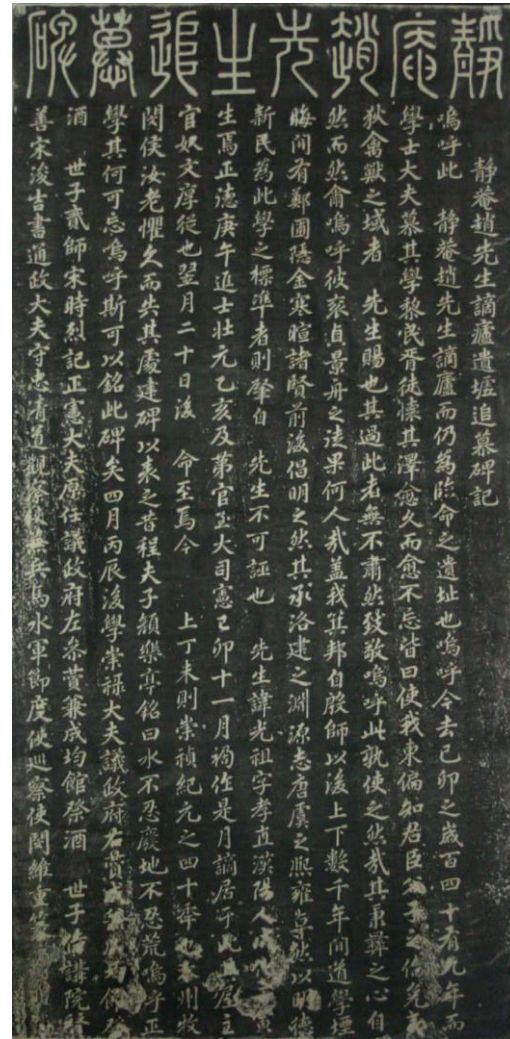 靜庵趙先生追慕碑
静菴趙先生謫廬遺墟追慕碑記
嗚呼此 静菴趙先生謫廬而仍為臨命之遺址也嗚呼今去己卯之歲百四十有九年而
學士大夫慕其學黎民胥徒懷其澤愈久而愈不忘皆曰使我東偏知君臣父子之倫免夷
狄禽獸之域者 先生賜也其過此者無不肅然致敬嗚呼此孰使之然哉其秉彝之心自
然而然爾嗚呼彼袞貞景舟之徒果何人哉蓋我箕邦自殷師以後上下數千年間道學堙
晦間有鄭圃隱金寒暄諸賢前後倡明之然其承洛建之淵源志唐虞之熙雍卓然以明德
新民為此學之標準者則肇自 先生不可誣也 先生諱光祖字孝直漢陽人
生焉正德庚午進士壯元乙亥及第官至大司憲己卯十一月禍作是月謫居于此
官奴文厚從也翌月二十日後 命至焉今 上丁未則崇禎紀元之四十年也 州牧
閔侯汝老懼久而失其處建碑以表之昔程夫子顏樂亭銘曰水不忍廢地不忍荒嗚呼正
學其何可忘嗚呼斯可以銘此碑矣四月丙辰後學崇祿大夫議政府右贊成
酒 世子貳師宋時烈記正憲大夫原任議政府左參贊兼成均館祭酒 世子侍講院贊
善宋浚吉書通政大夫守忠清道觀察使兼兵馬水軍節度使巡察使閔維重篆